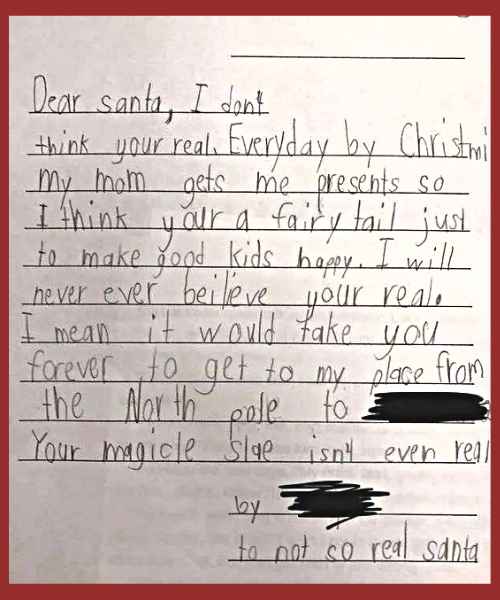 Dear santa, I don't
think your real. Everyday by Christmi
my mom gets me presents so
I think your a fairy tail just
to make good kids happy. I will
never ever beilieve your real.
I mean it would take you
forever to get to my place from
the North pole to
Your magicle slae isn't even real
by
to not so real santa